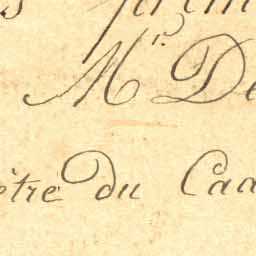 Mr. De
être du Caa